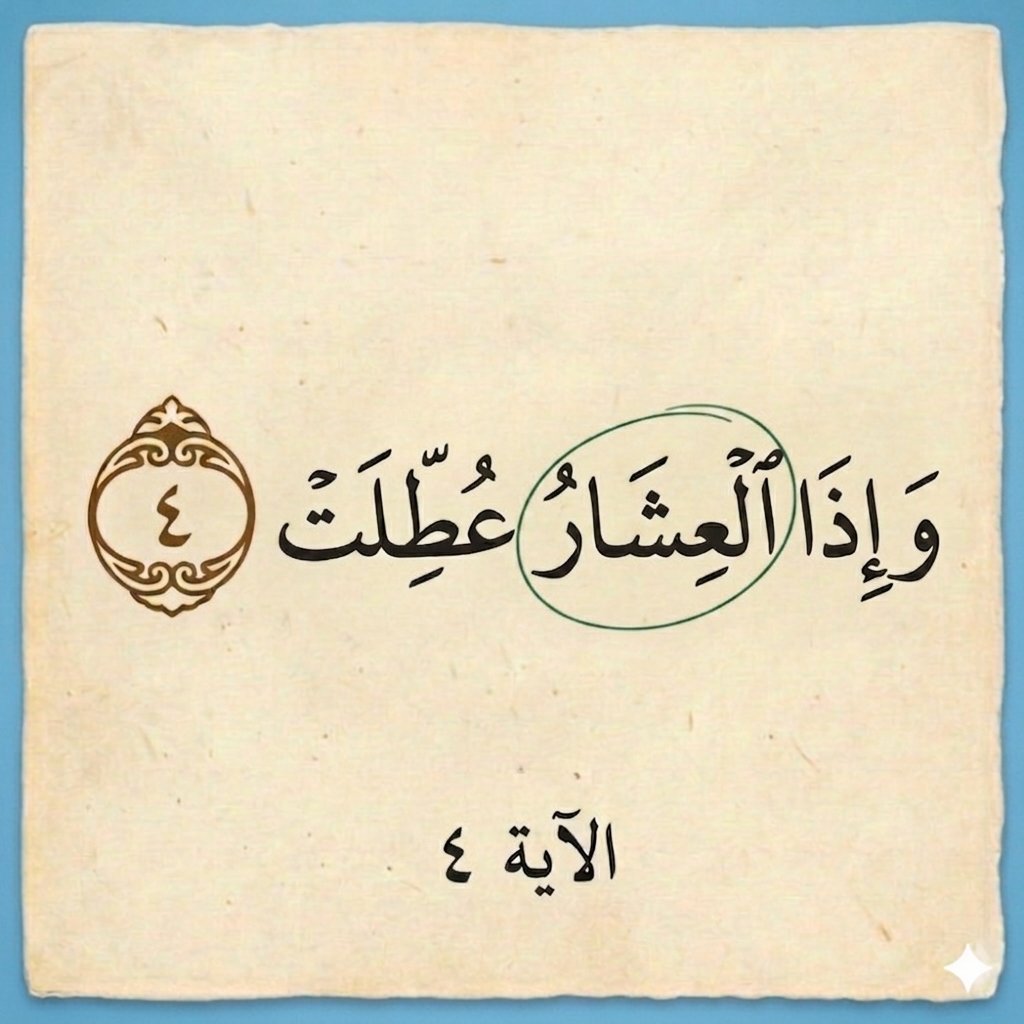 وَإِذَا ٱلْعِشَارُ عُطِّلَتْ ٤
الآية ٤